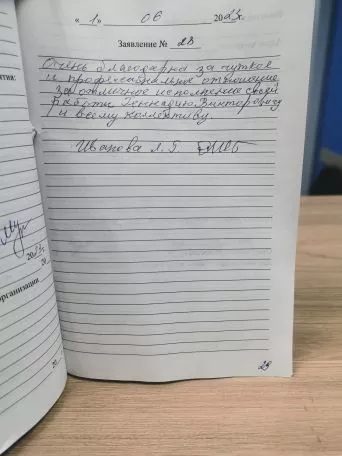 « 1 » 06 2023г.
Заявление № 28
Очень благодарна за чуткое
и профессиональное отношение,
за отличное исполнение своей
работы Геннадию Викторовичу
и всему коллективу.
Иванова Л. Б.
2023г.
20
организации
20
29